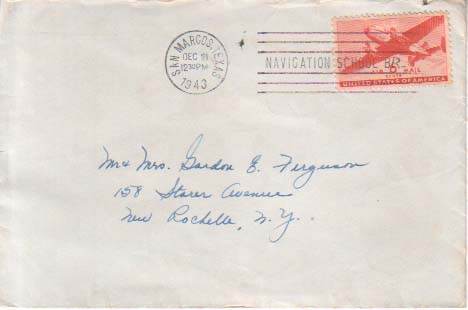 SAN MARCOS, TEXAS
DEC
12 PM
1943
NAVIGATION SCHOOL BR.
AIR MAIL
UNITED STATES OF AMERICA
Mr & Mrs. Gordon E. Ferguson
158 Storer Avenue
New Rochelle, N.Y.